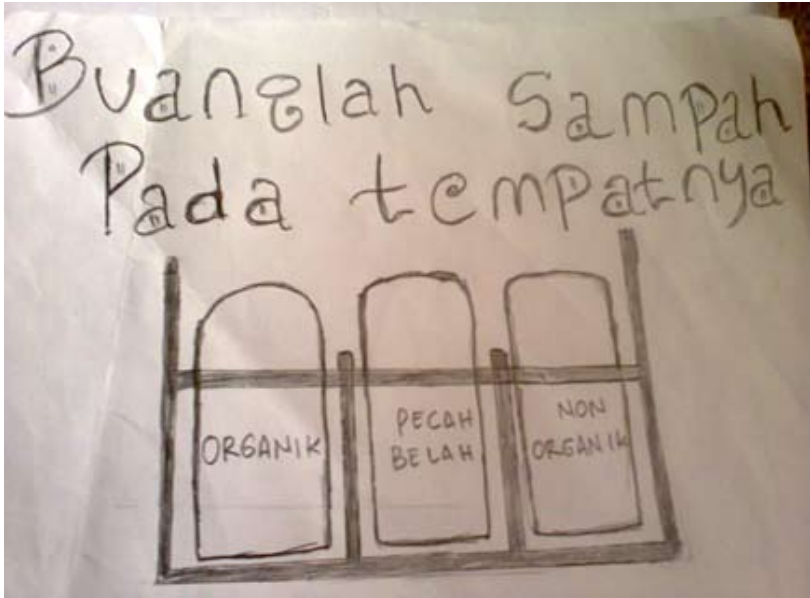 Buanglah Sampah
Pada tempatnya
ORGANIK
PECAH
BELAH
NON
ORGANIK